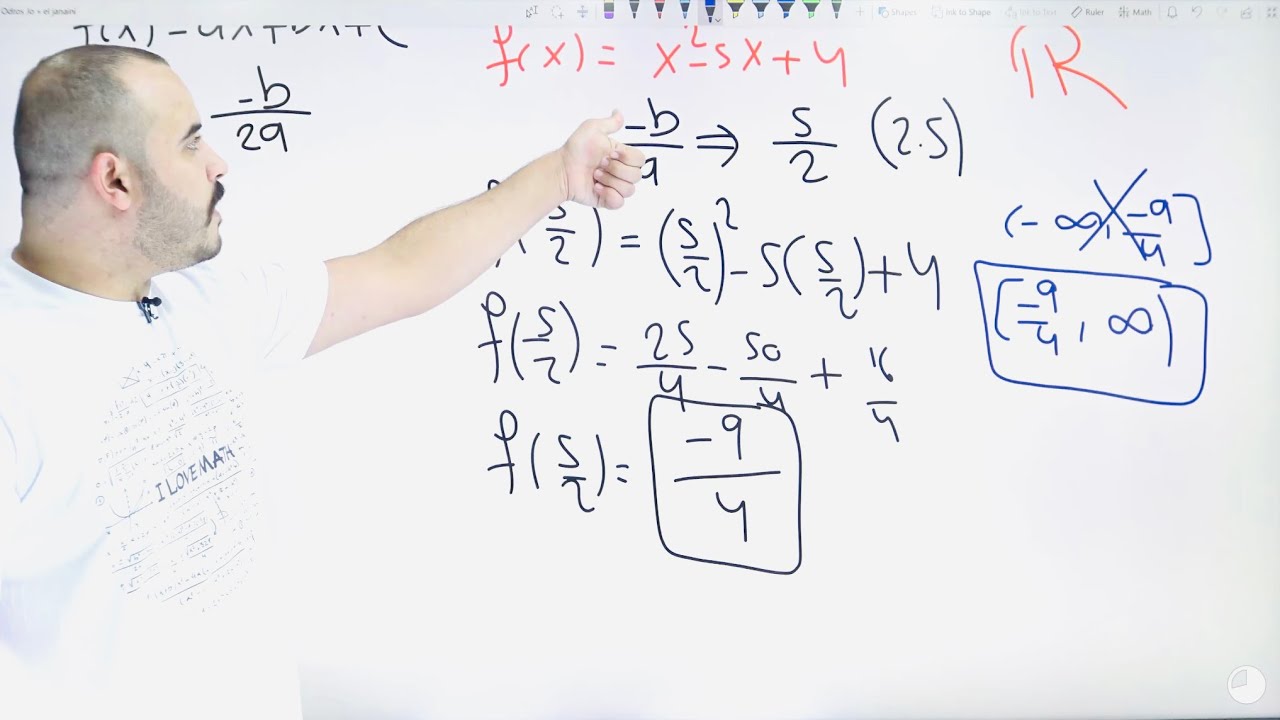 Odros Jo + el janaini
Shapes Ink to Shape Ink to Text Ruler Math
f(x) = x²-5x+4
ℝ
-b/2a
-b/a ⇒ 5/2 (2.5)
(-∞, -9/4]
(5/2) = (5/2)² - 5(5/2) + 4
[-9/4, ∞)
f(5/2) = 25/4 - 50/4 + 16/4
f(5/2) = -9/4
I LOVE MATH